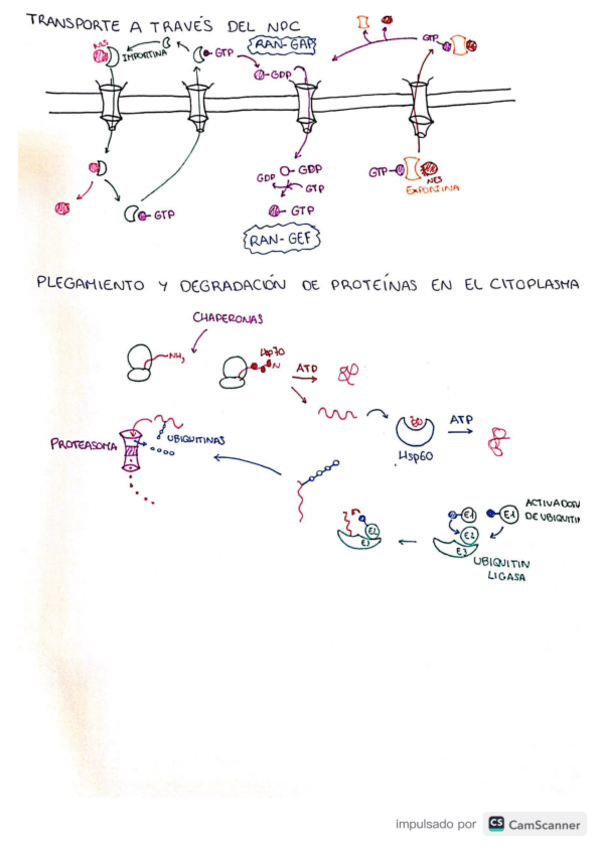 TRANSPORTE A TRAVÉS DEL NPC
NLS
IMPORTINA
GTP
RAN-GAP
GDP
GTP
GTP
GDP
GDP
GTP
GTP
RAN-GEF
GTP
NES
EXPORTINA
PLEGAMIENTO Y DEGRADACIÓN DE PROTEÍNAS EN EL CITOPLASMA
CHAPERONAS
NH₃
Hsp70
N
ATP
Hsp60
ATP
PROTEASOMA
UBIQUITINAS
E2
E3
E1
E2
E3
E1
ACTIVADOR
DE UBIQUITIN
UBIQUITIN
LIGASA
impulsado por CS CamScanner